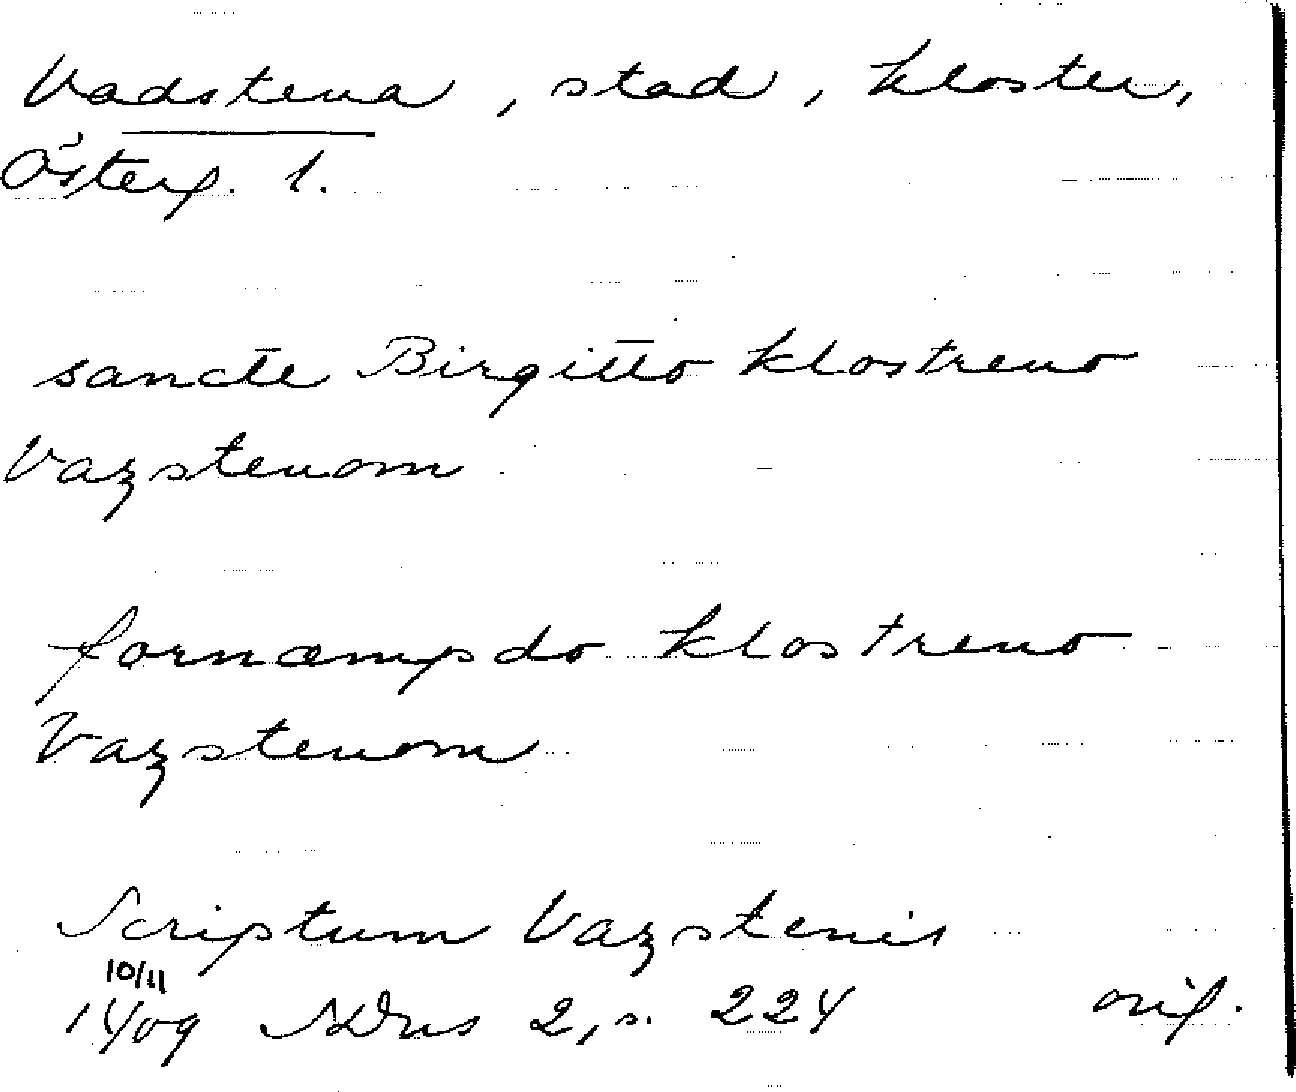 Vadstena, stad, kloster,
Österg. l.
sancte Birgitto klostreno
Vazstenom
fornæmpdo klostreno
Vazstenom
Scriptum Vazstenis
10/11
1409 SDns 2, s. 224 orig.